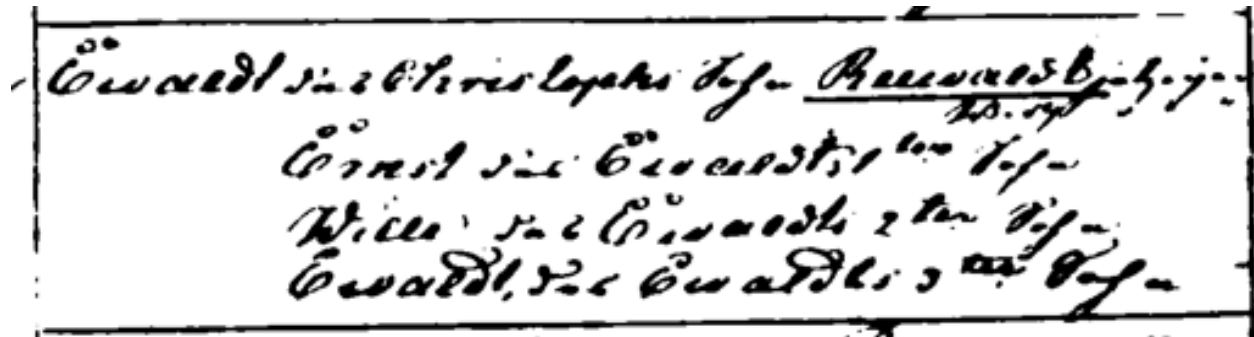 Ewaldt des Christophs Sohn Ruuwaldt
Ernst des Ewaldts 1ter Sohn
Willi des Ewaldts 2ter Sohn
Ewaldt, des Ewaldts 3ter Sohn